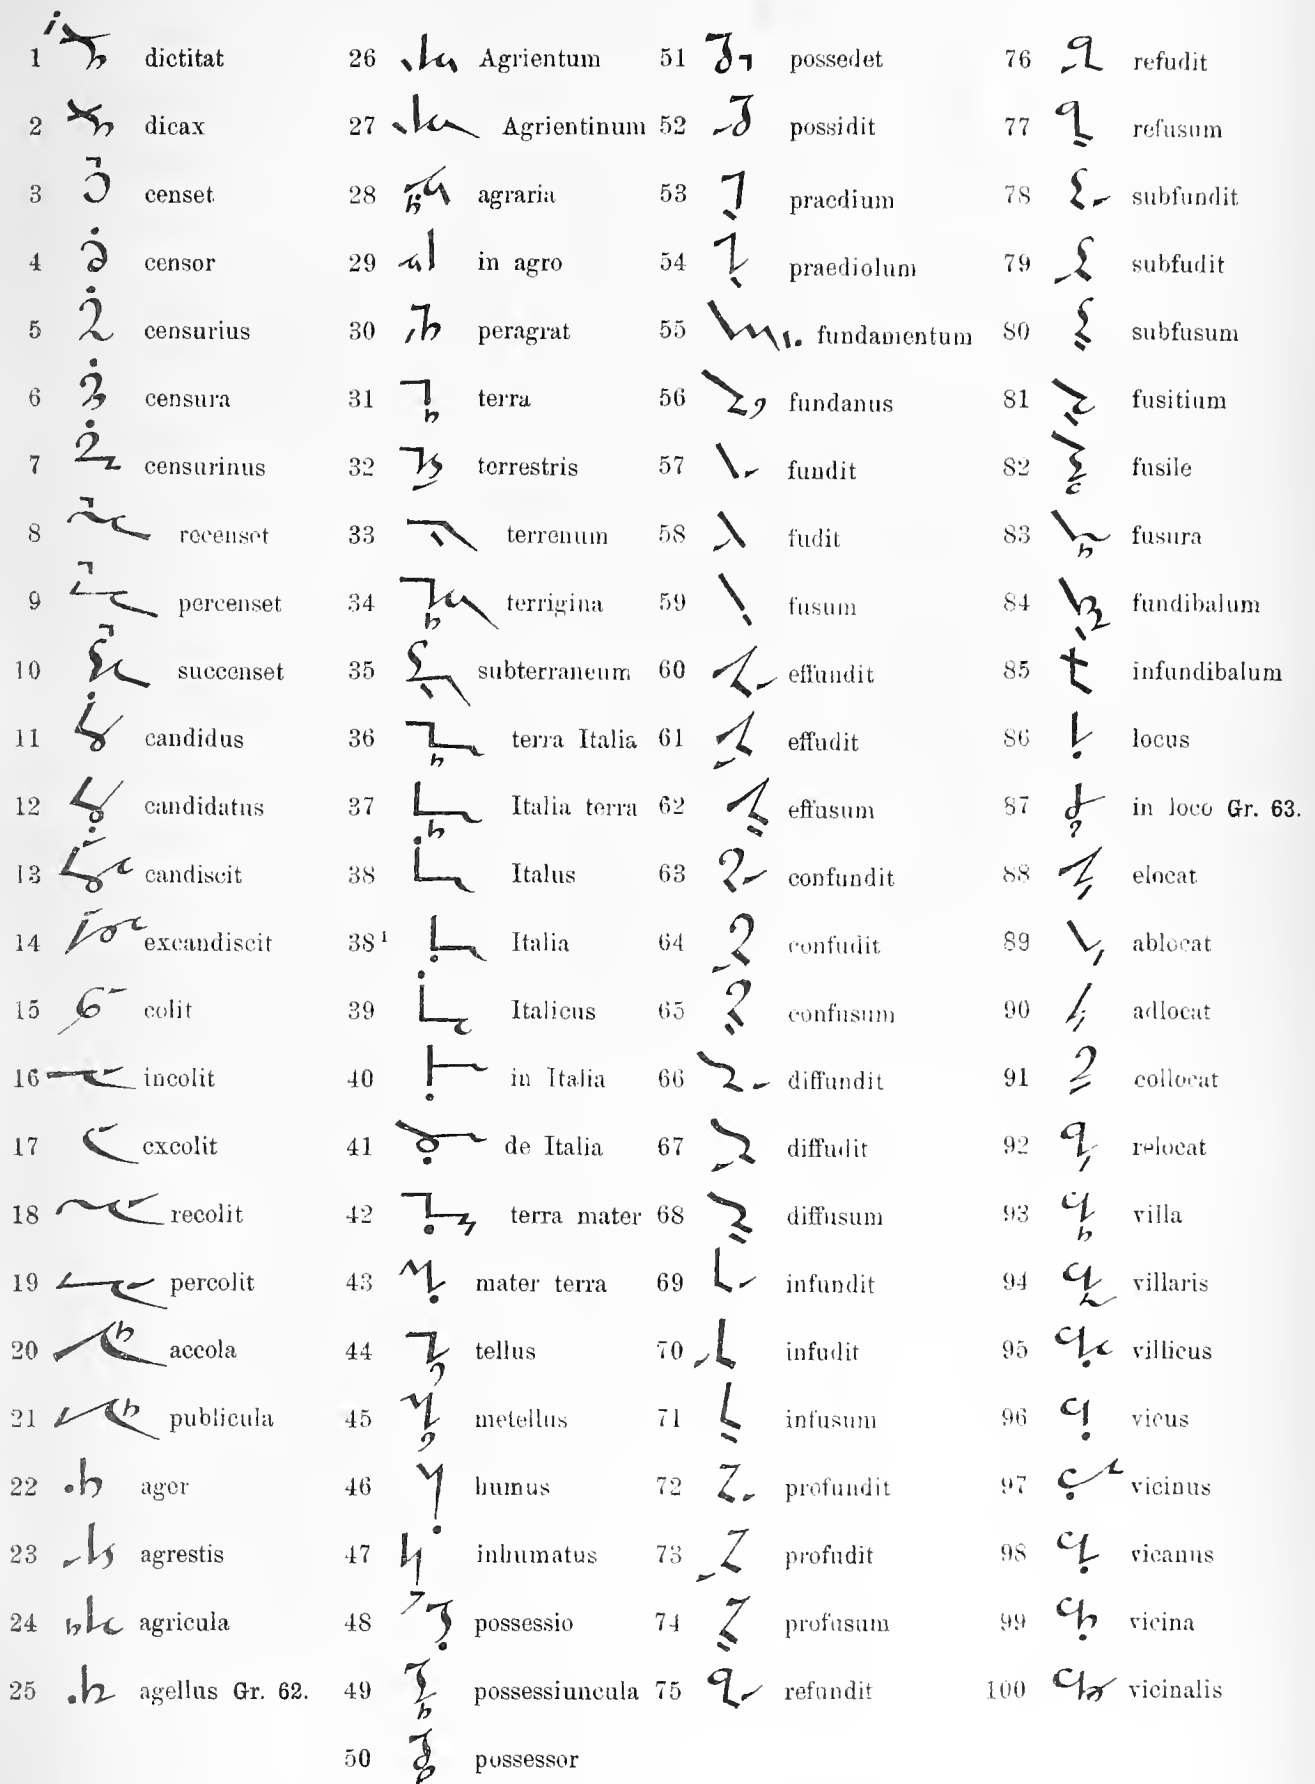 1 dictitat
2 dicax
3 censet
4 censor
5 censurius
6 censura
7 censurinus
8 recenset
9 percenset
10 succenset
11 candidus
12 candidatus
13 candiscit
14 excandiscit
15 colit
16 incolit
17 excolit
18 recolit
19 percolit
20 accola
21 publicula
22 ager
23 agrestis
24 agricula
25 agellus Gr. 62.
26 Agrientum
27 Agrientinum
28 agraria
29 in agro
30 peragrat
31 terra
32 terrestris
33 terrenum
34 terrigina
35 subterraneum
36 terra Italia
37 Italia terra
38 Italus
38¹ Italia
39 Italicus
40 in Italia
41 de Italia
42 terra mater
43 mater terra
44 tellus
45 metellus
46 humus
47 inhumatus
48 possessio
49 possessiuncula
50 possessor
51 possedet
52 possidit
53 praedium
54 praediolum
55 fundamentum
56 fundanus
57 fundit
58 fudit
59 fusum
60 effundit
61 effudit
62 effusum
63 confundit
64 confudit
65 confusum
66 diffundit
67 diffudit
68 diffusum
69 infundit
70 infudit
71 infusum
72 profundit
73 profudit
74 profusum
75 refundit
76 refudit
77 refusum
78 subfundit
79 subfudit
80 subfusum
81 fusitium
82 fusile
83 fusura
84 fundibalum
85 infundibalum
86 locus
87 in loco Gr. 63.
88 elocat
89 ablocat
90 adlocat
91 collocat
92 relocat
93 villa
94 villaris
95 villicus
96 vicus
97 vicinus
98 vicanus
99 vicina
100 vicinalis